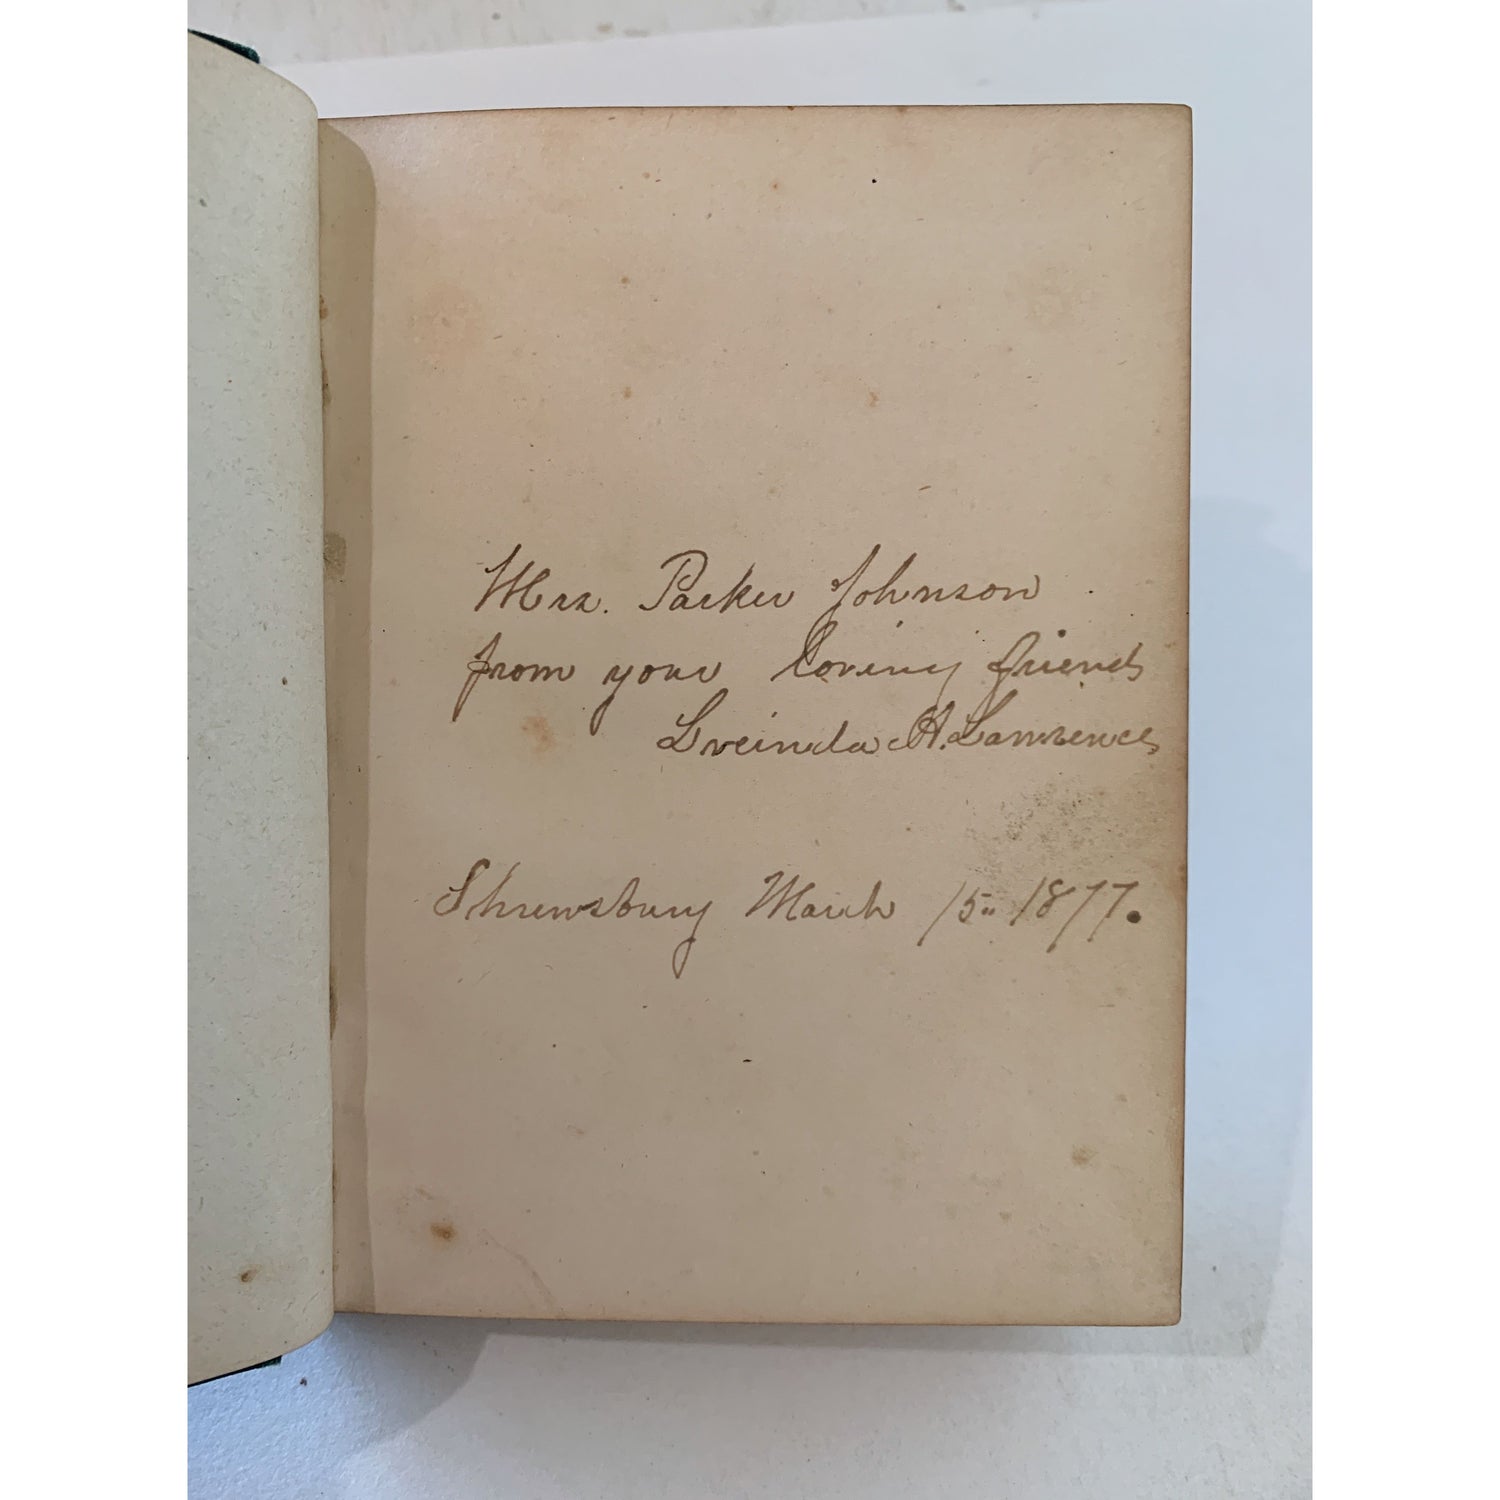 Mrs. Parker Johnson
from your loving friend
Lreinda H. Lawrence
Shrewsbury March 15" 1877.